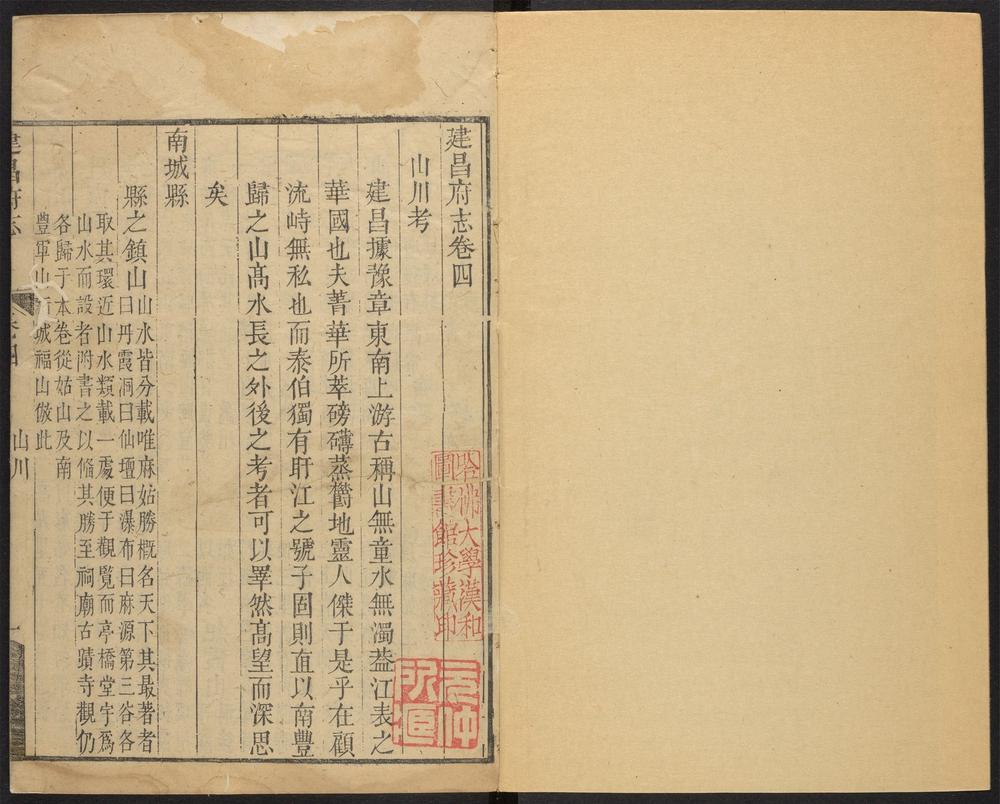 建昌府志卷四
山川考
建昌據豫章東南上游古稱山無童水無濁葢江表之
華國也夫菁華所萃磅礴蒸鬱地靈人傑于是乎在顧
流峙無私也而泰伯獨有盱江之號子固則直以南豐
歸之山髙水長之外後之考者可以睪然髙望而深思
矣
南城縣
縣之鎮山
山水皆分載唯麻姑勝概名天下其最著者
曰丹霞洞曰仙壇曰瀑布曰麻源第三谷各
取其環近山水類載一處便于觀覧而亭橋堂宇爲
山水而設者附書之以偹其勝至祠廟古蹟寺觀仍
各歸于本卷從姑山及南
豐軍山新城福山倣此
建昌府志
卷四
山川
一
哈佛大學漢和
圖書館珍藏印